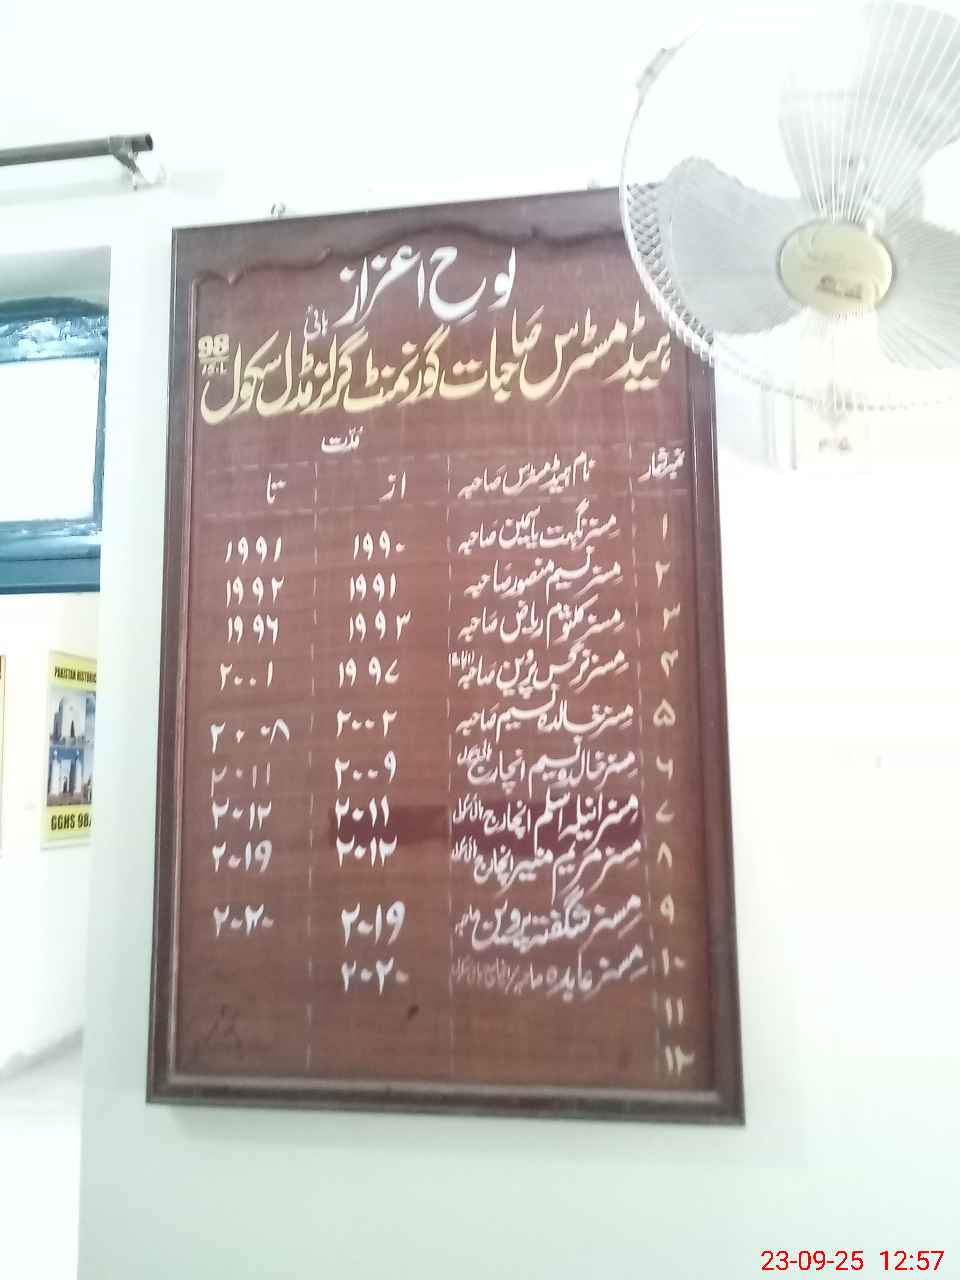 لوحِ اعزاز
ہیڈ مسٹرس صاحبات گورنمنٹ گرلز مڈل سکول
ہائی
98
مُدّت
نمبر شمار نام ہیڈ مسٹرس صَاحبہ از تا
۱ مسز نگہت یاسمین صَاحبہ ۱۹۹۰ ۱۹۹۱
۲ مسز نسیم منصور صَاحبہ ۱۹۹۱ ۱۹۹۲
۳ مسز کلثوم ریاض صَاحبہ ۱۹۹۳ ۱۹۹۶
۴ مسز نرگس پروین صَاحبہ ۱۹۹۷ ۲۰۰۱
۵ مسز خالدہ نسیم صَاحبہ ۲۰۰۲ ۲۰۰۸
۶ مسز خالدہ نسیم انچارج ہائی سکول ۲۰۰۹ ۲۰۱۱
۷ مسز انیلہ اسلم انچارج ہائی سکول ۲۰۱۱ ۲۰۱۲
۸ مسز مریم منیر انچارج ہائی سکول ۲۰۱۲ ۲۰۱۹
۹ مسز شگفتہ پروین صاحبہ ۲۰۱۹ ۲۰۲۰
۱۰ مسز عابدہ ۲۰۲۰
۱۱
۱۲
PAKISTAN HISTORIC
GGHS 98/
23-09-25 12:57